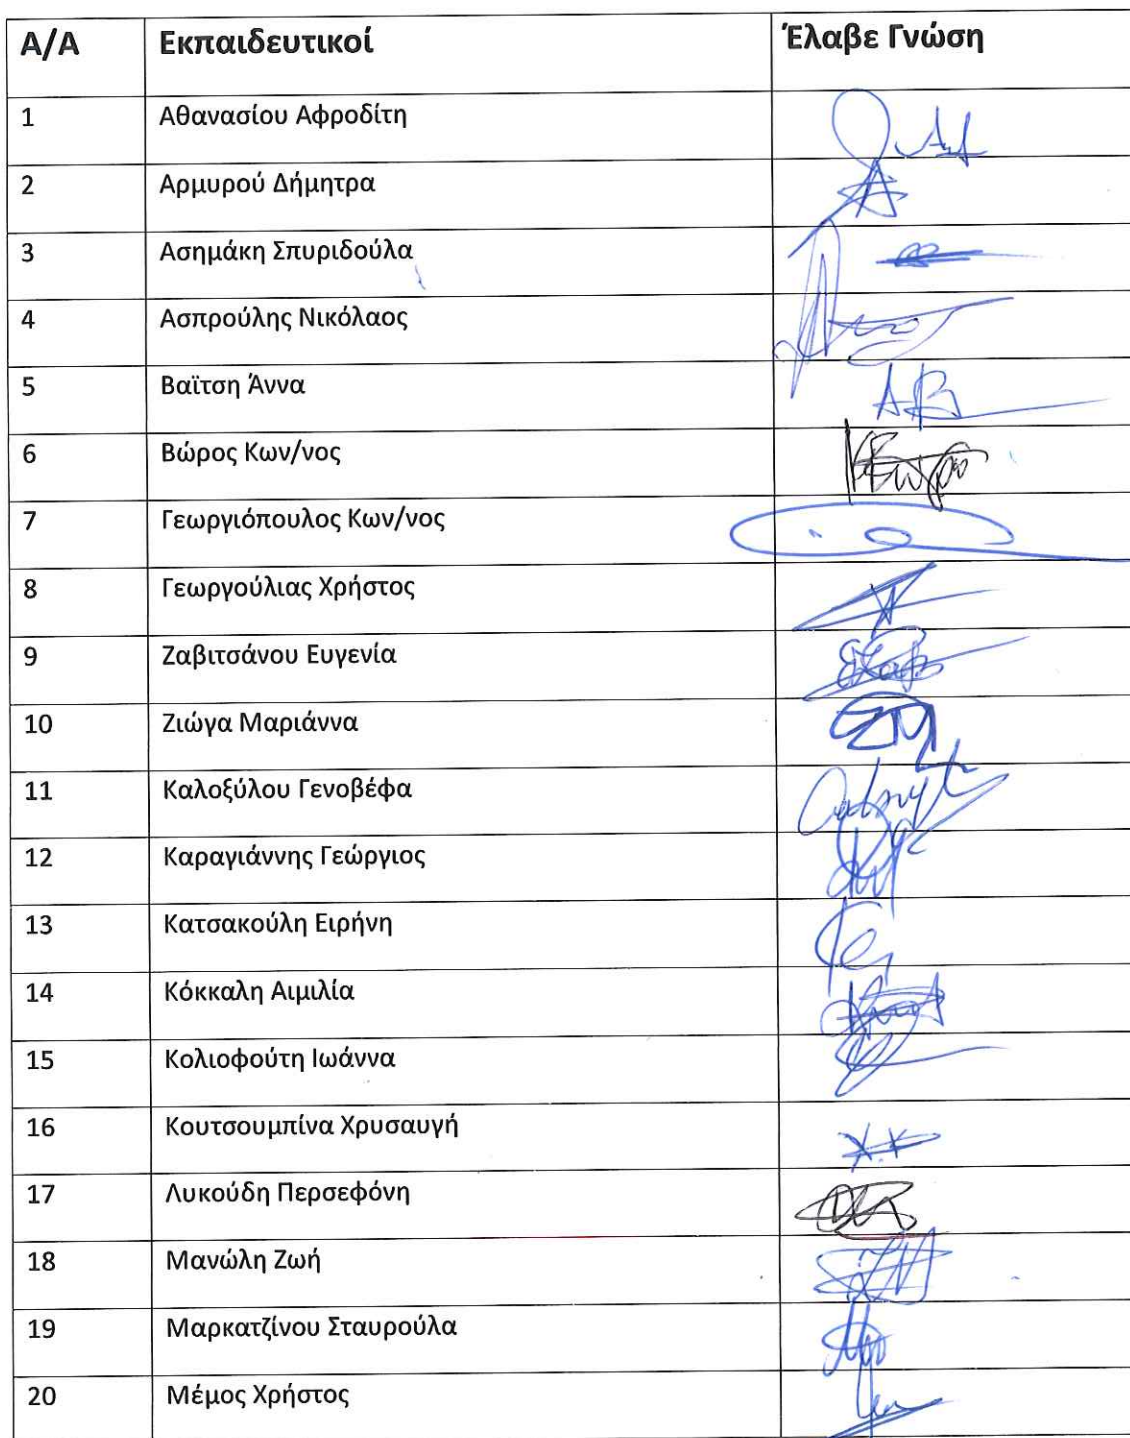 Α/Α Εκπαιδευτικοί Έλαβε Γνώση
1 Αθανασίου Αφροδίτη
2 Αρμυρού Δήμητρα
3 Ασημάκη Σπυριδούλα
4 Ασπρούλης Νικόλαος
5 Βαϊτση Άννα
6 Βώρος Κων/νος
7 Γεωργιόπουλος Κων/νος
8 Γεωργούλιας Χρήστος
9 Ζαβιτσάνου Ευγενία
10 Ζιώγα Μαριάννα
11 Καλοξύλου Γενοβέφα
12 Καραγιάννης Γεώργιος
13 Κατσακούλη Ειρήνη
14 Κόκκαλη Αιμιλία
15 Κολιοφούτη Ιωάννα
16 Κουτσουμπίνα Χρυσαυγή
17 Λυκούδη Περσεφόνη
18 Μανώλη Ζωή
19 Μαρκατζίνου Σταυρούλα
20 Μέμος Χρήστος